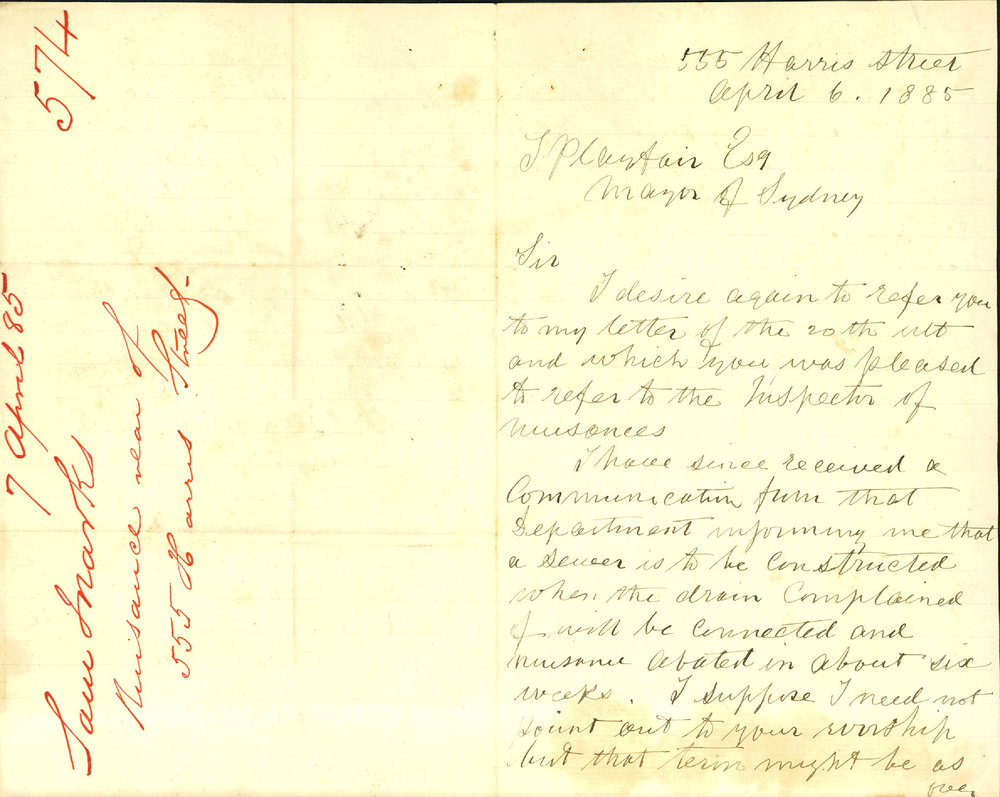 574
7 April 85
Saml Marks
Nuisance rear of
555 Harris Street
555 Harris Street
April 6. 1885
T Playfair Esq
Mayor of Sydney
Sir
I desire again to refer you
to my letter of the 20th ult
and which you was pleased
to refer to the Inspector of
nuisances
I have since received a
Communication from that
Department informing me that
a sewer is to be Constructed
when the drain Complained
of will be Connected and
nuisance abated in about six
weeks. I suppose I need not
point out to your worship
but that term might be as
over